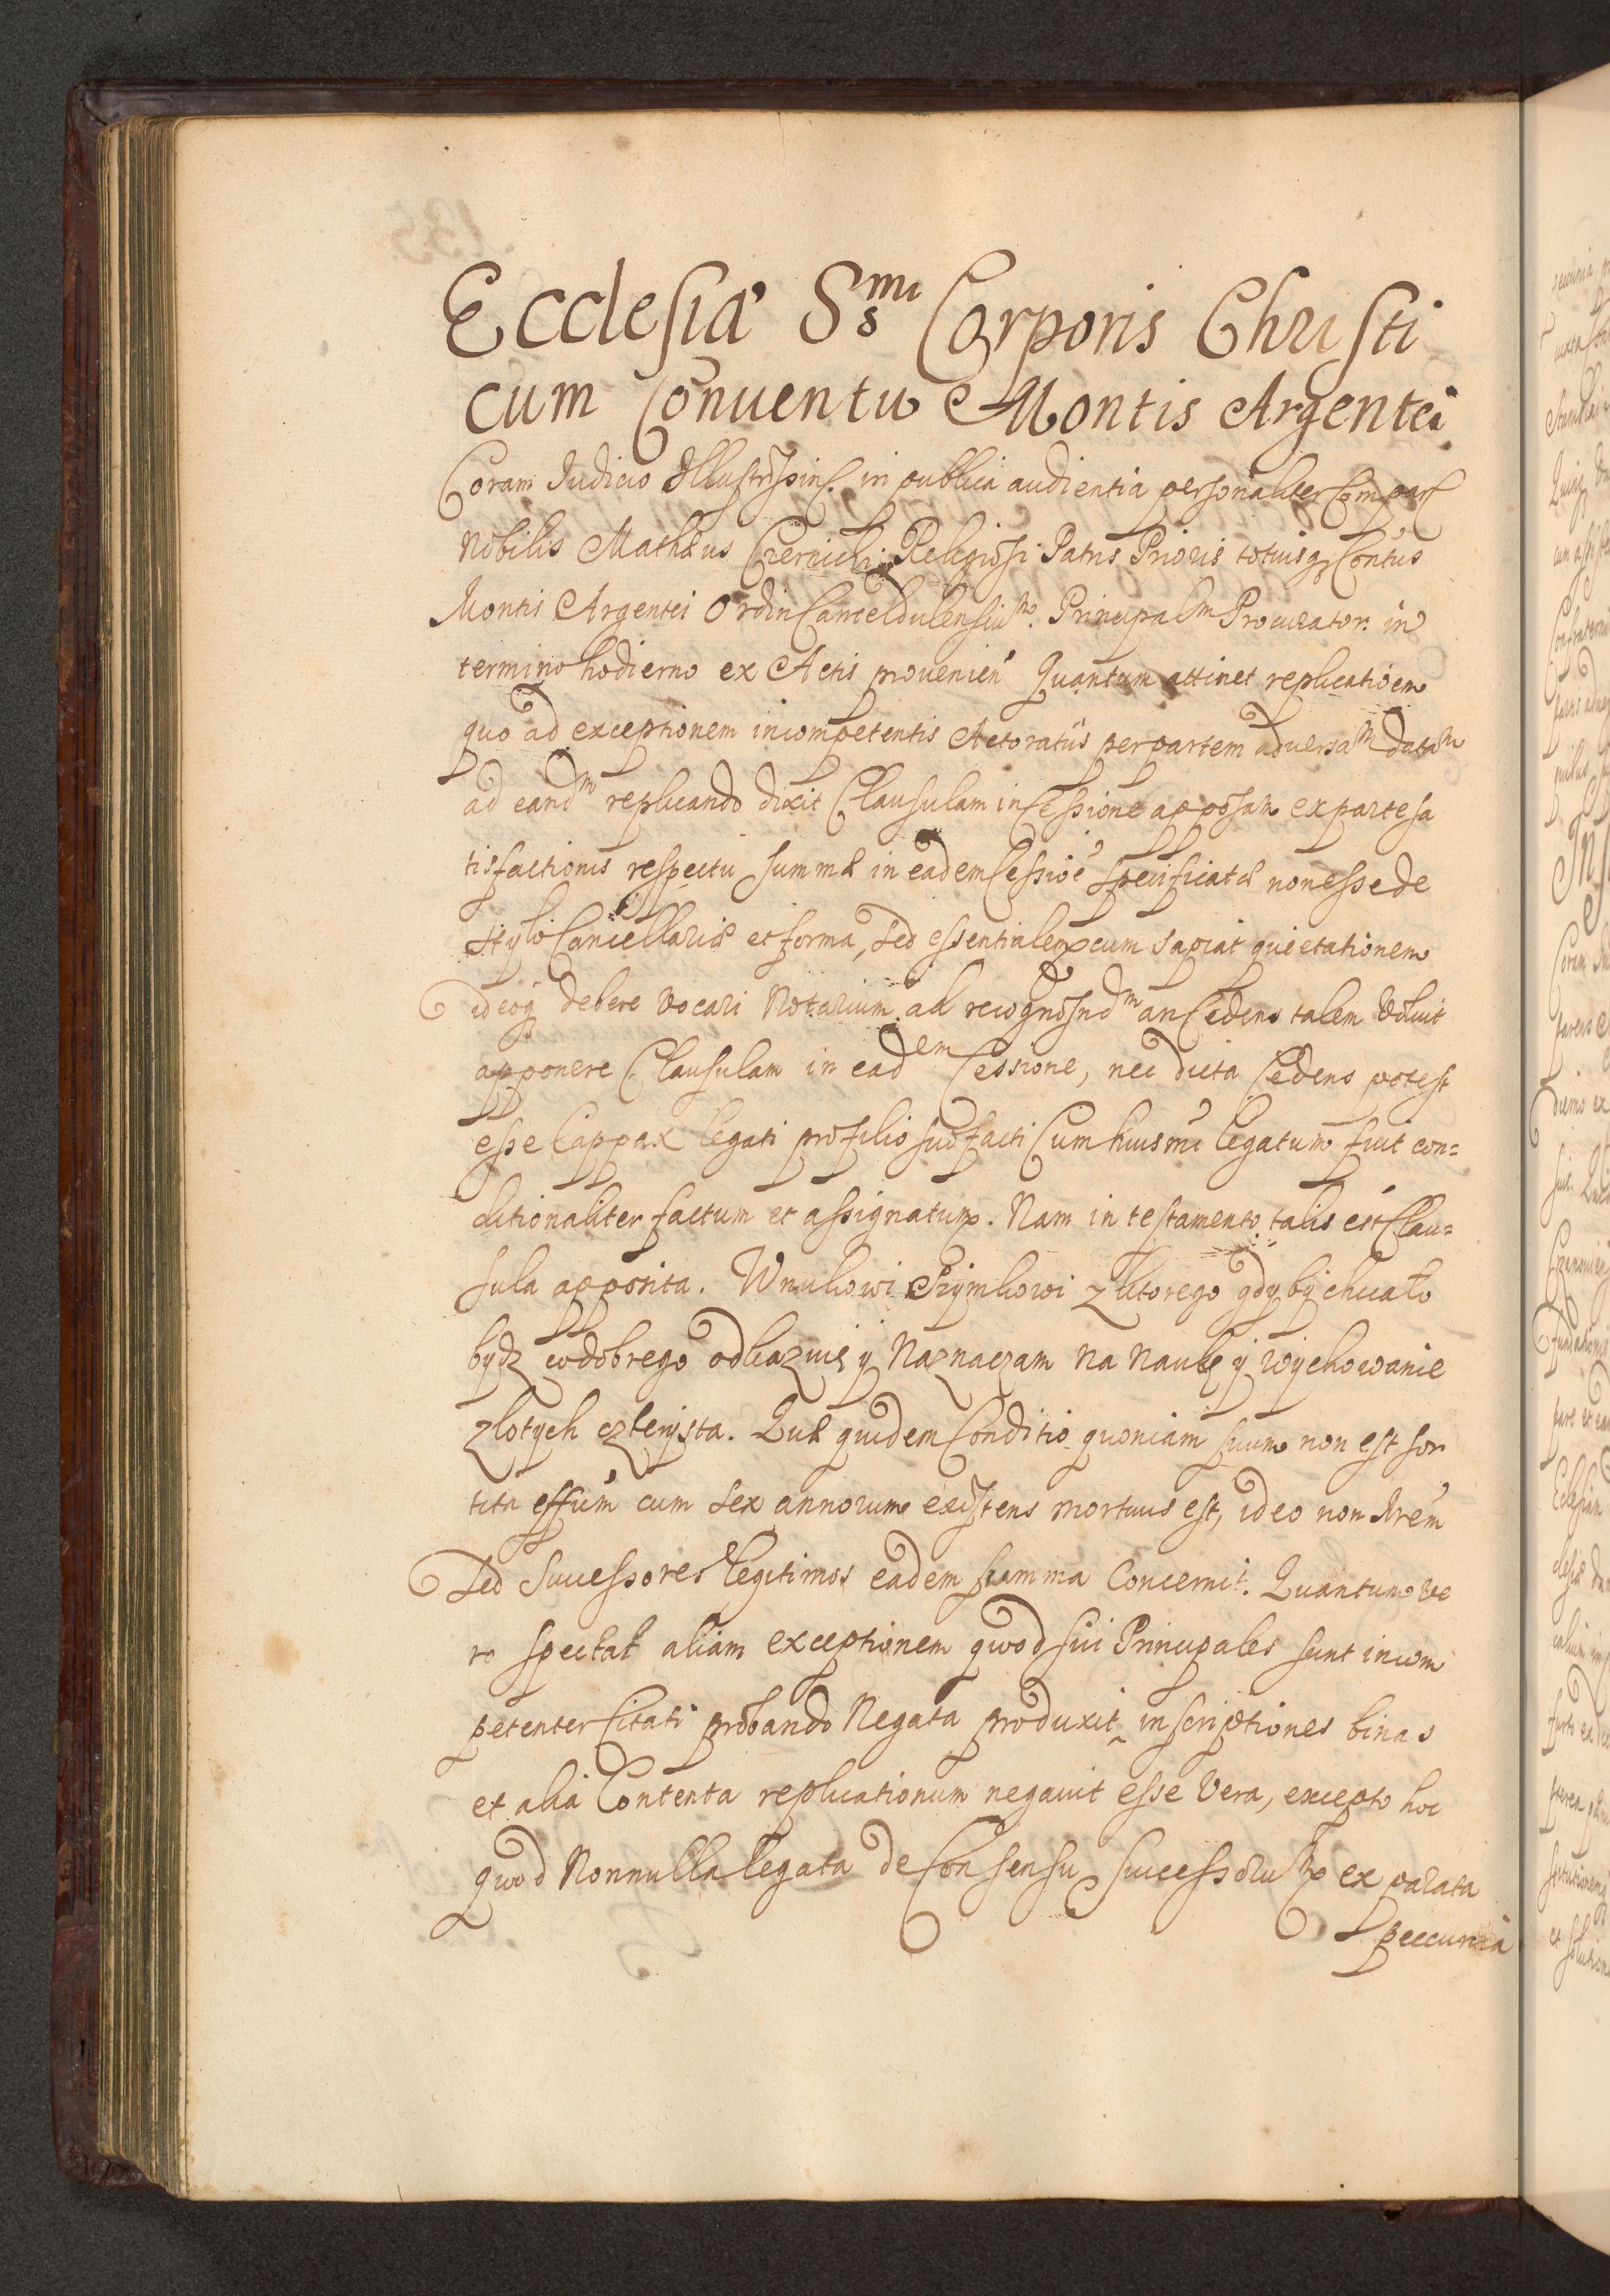 Ecclesiæ Ssmi Corporis Christi
cum Conuentu Montis Argentei
Coram Iudicio in publica audientia personaliter Compar
Nobilis Mathæus Czernicki Religiosi Patris Prioris totiusq Contus
Montis Argentei Ordin Camaeldulensium. Principalm Procurator. in
termino hodierno ex Actis prouenien Quantum attinet replicatioem
quo ad exceptionem incompetentis Actoratus per partem aduersam datam
ad eandm replicando dixit Clausulam in Cessione apposam ex parte sa
tisfactionis respectu summæ in eadem Cessioe specificatæ non esse de
stylo Cancellariæ et forma, sed essentialem cum sapiat quietationem
ideoq debere vocari Notarium ad recognosndm an Cedens talem voluit
apponere Clausulam in eadem Cessione, nec dicta Cedens potest
esse Cappax legati pro filio suo facti Cum huiusmi legatum fuit con=
ditionaliter factum et assignatum. Nam in testamento talis est Clau=
sula apposita. Wnukowi Szymkowi z ktorego gdyby chciało
bydz co dobrego odkazuię y Naznaczam na naukę y wychowanie
zlotych czterysta. Quæ quidem Conditio quoniam suum non est sor
tita effum cum sex annorum existens mortuus est, ideo non Mrem
sed Successores legitimos eadem summa Concernit. Quantum ve
ro spectat aliam exceptionem quod sui Principales sunt incom
petenter Citati probando Negata produxit inscriptiones binas
et alia Contenta replicationum negauit esse vera, excepto hoc
quod Nonnulla legata de Consensu Successorum ex parata
peccunia